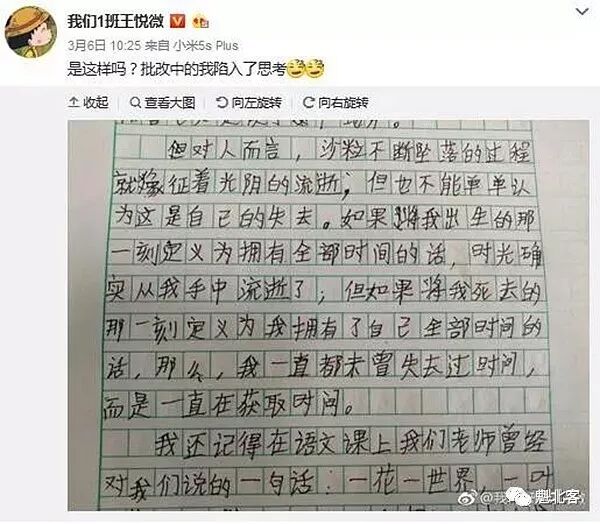 我们1班王悦微
3月6日 10:25 来自 小米5s Plus
是这样吗？批改中的我陷入了思考
收起 查看大图 向左旋转 向右旋转
但对人而言，沙粒不断坠落的过程
就像征着光阴的流逝；但也不能单单认
为这是自己的失去。如果将我出生的那
一刻定义为拥有全部时间的话，时光确
实从我手中流逝了；但如果将我死去的
那一刻定义为我拥有了自己全部时间的
话，那么，我一直都未曾失去过时间，
而是一直在获取时间。
我还记得在语文课上我们老师曾经
对我们说的一句话：一花一世界，一叶
魁北客